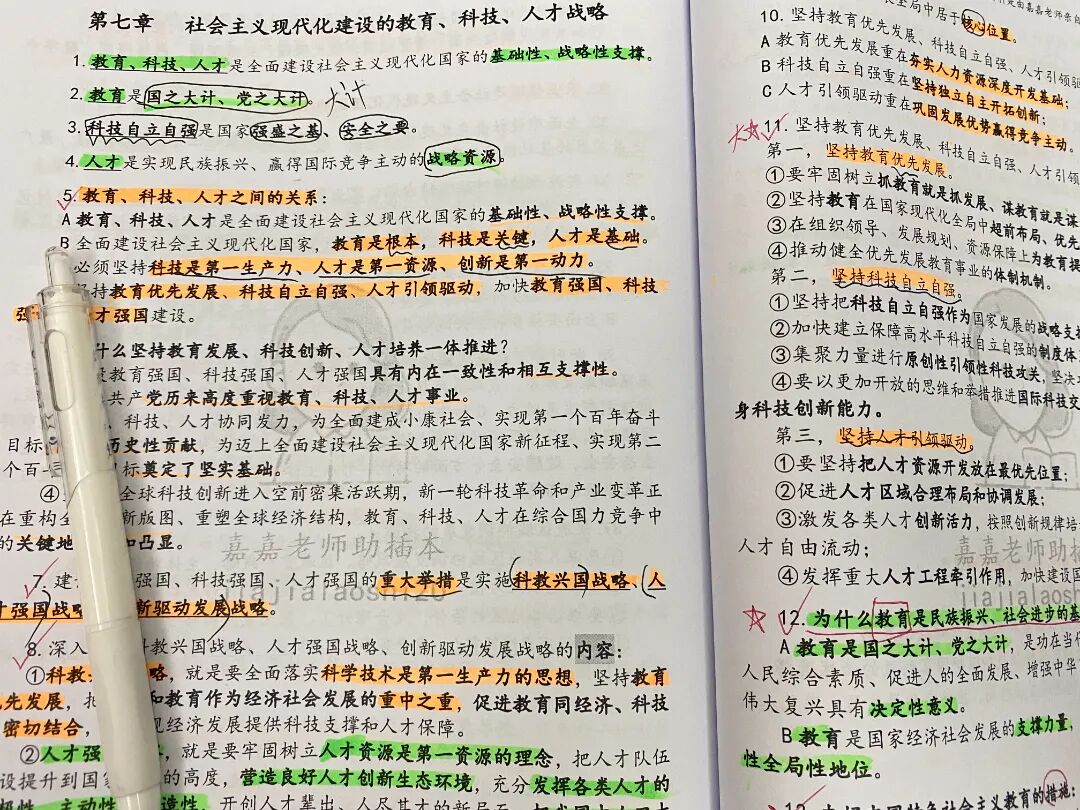 第七章 社会主义现代化建设的教育、科技、人才战略
1. 教育、科技、人才是全面建设社会主义现代化国家的基础性、战略性支撑。
2. 教育是国之大计、党之大计。 大计
3. 科技自立自强是国家强盛之基、安全之要。
4. 人才是实现民族振兴、赢得国际竞争主动的战略资源。
5. 教育、科技、人才之间的关系：
A 教育、科技、人才是全面建设社会主义现代化国家的基础性、战略性支撑。
B 全面建设社会主义现代化国家，教育是根本，科技是关键，人才是基础。
必须坚持科技是第一生产力、人才是第一资源、创新是第一动力。
坚持教育优先发展、科技自立自强、人才引领驱动，加快教育强国、科技
强 才强国建设。
什么坚持教育发展、科技创新、人才培养一体推进？
教育强国、科技强国、人才强国具有内在一致性和相互支撑性。
共产党历来高度重视教育、科技、人才事业。
、科技、人才协同发力，为全面建成小康社会、实现第一个百年奋斗
目标 历史性贡献，为迈上全面建设社会主义现代化国家新征程、实现第二
个百 标奠定了坚实基础。
④ 全球科技创新进入空前密集活跃期，新一轮科技革命和产业变革正
在重构全 新版图、重塑全球经济结构，教育、科技、人才在综合国力竞争中
的关键地 和凸显。
嘉嘉老师助插本
7. 建 强国、科技强国、人才强国的重大举措是实施科教兴国战略、人
才强国战略 新驱动发展战略。
jiajialaoshi20
8. 深入 科教兴国战略、人才强国战略、创新驱动发展战略的内容：
①科教 略，就是要全面落实科学技术是第一生产力的思想，坚持教育
优先发展， 和教育作为经济社会发展的重中之重，促进教育同经济、科技
密切结合， 现经济发展提供科技支撑和人才保障。
②人才强 ，就是要牢固树立人才资源是第一资源的理念，把人才队伍
设提升到国家 的高度，营造良好人才创新生态环境，充分发挥各类人才的
极性、主动性 造性，开创人才辈出、人尽其才的新局面
10. 坚持教育优先发展、科技自立自强、人才引领驱
全局中居于核心位置。
A 教育优先发展重在夯实人力资源深度开发基础；
B 科技自立自强重在坚持独立自主开拓创新；
C 人才引领驱动重在巩固发展优势赢得竞争主动。
大 11. 坚持教育优先发展、科技自立自强、人才引领
第一，坚持教育优先发展。
①要牢固树立抓教育就是抓发展、谋教育就是谋
②坚持教育在国家现代化全局中超前布局、优先
③在组织领导、发展规划、资源保障上为教育提
④推动健全优先发展教育事业的体制机制。
第二，坚持科技自立自强。
①坚持把科技自立自强作为国家发展的战略支
②加快建立保障高水平科技自立自强的制度体
③集聚力量进行原创性引领性科技攻关，坚决
④要以更加开放的思维和举措推进国际科技交
身科技创新能力。
第三，坚持人才引领驱动。
①要坚持把人才资源开发放在最优先位置；
②促进人才区域合理布局和协调发展；
③激发各类人才创新活力，按照创新规律培
人才自由流动；
嘉嘉老师助插
④发挥重大人才工程牵引作用，加快建设国
jiajialaoshi
12. 为什么教育是民族振兴、社会进步的基
A 教育是国之大计、党之大计，是功在当
人民综合素质、促进人的全面发展、增强中华
伟大复兴具有决定性意义。
B 教育是国家经济社会发展的支撑力量，
性全局性地位。
教育的措施：